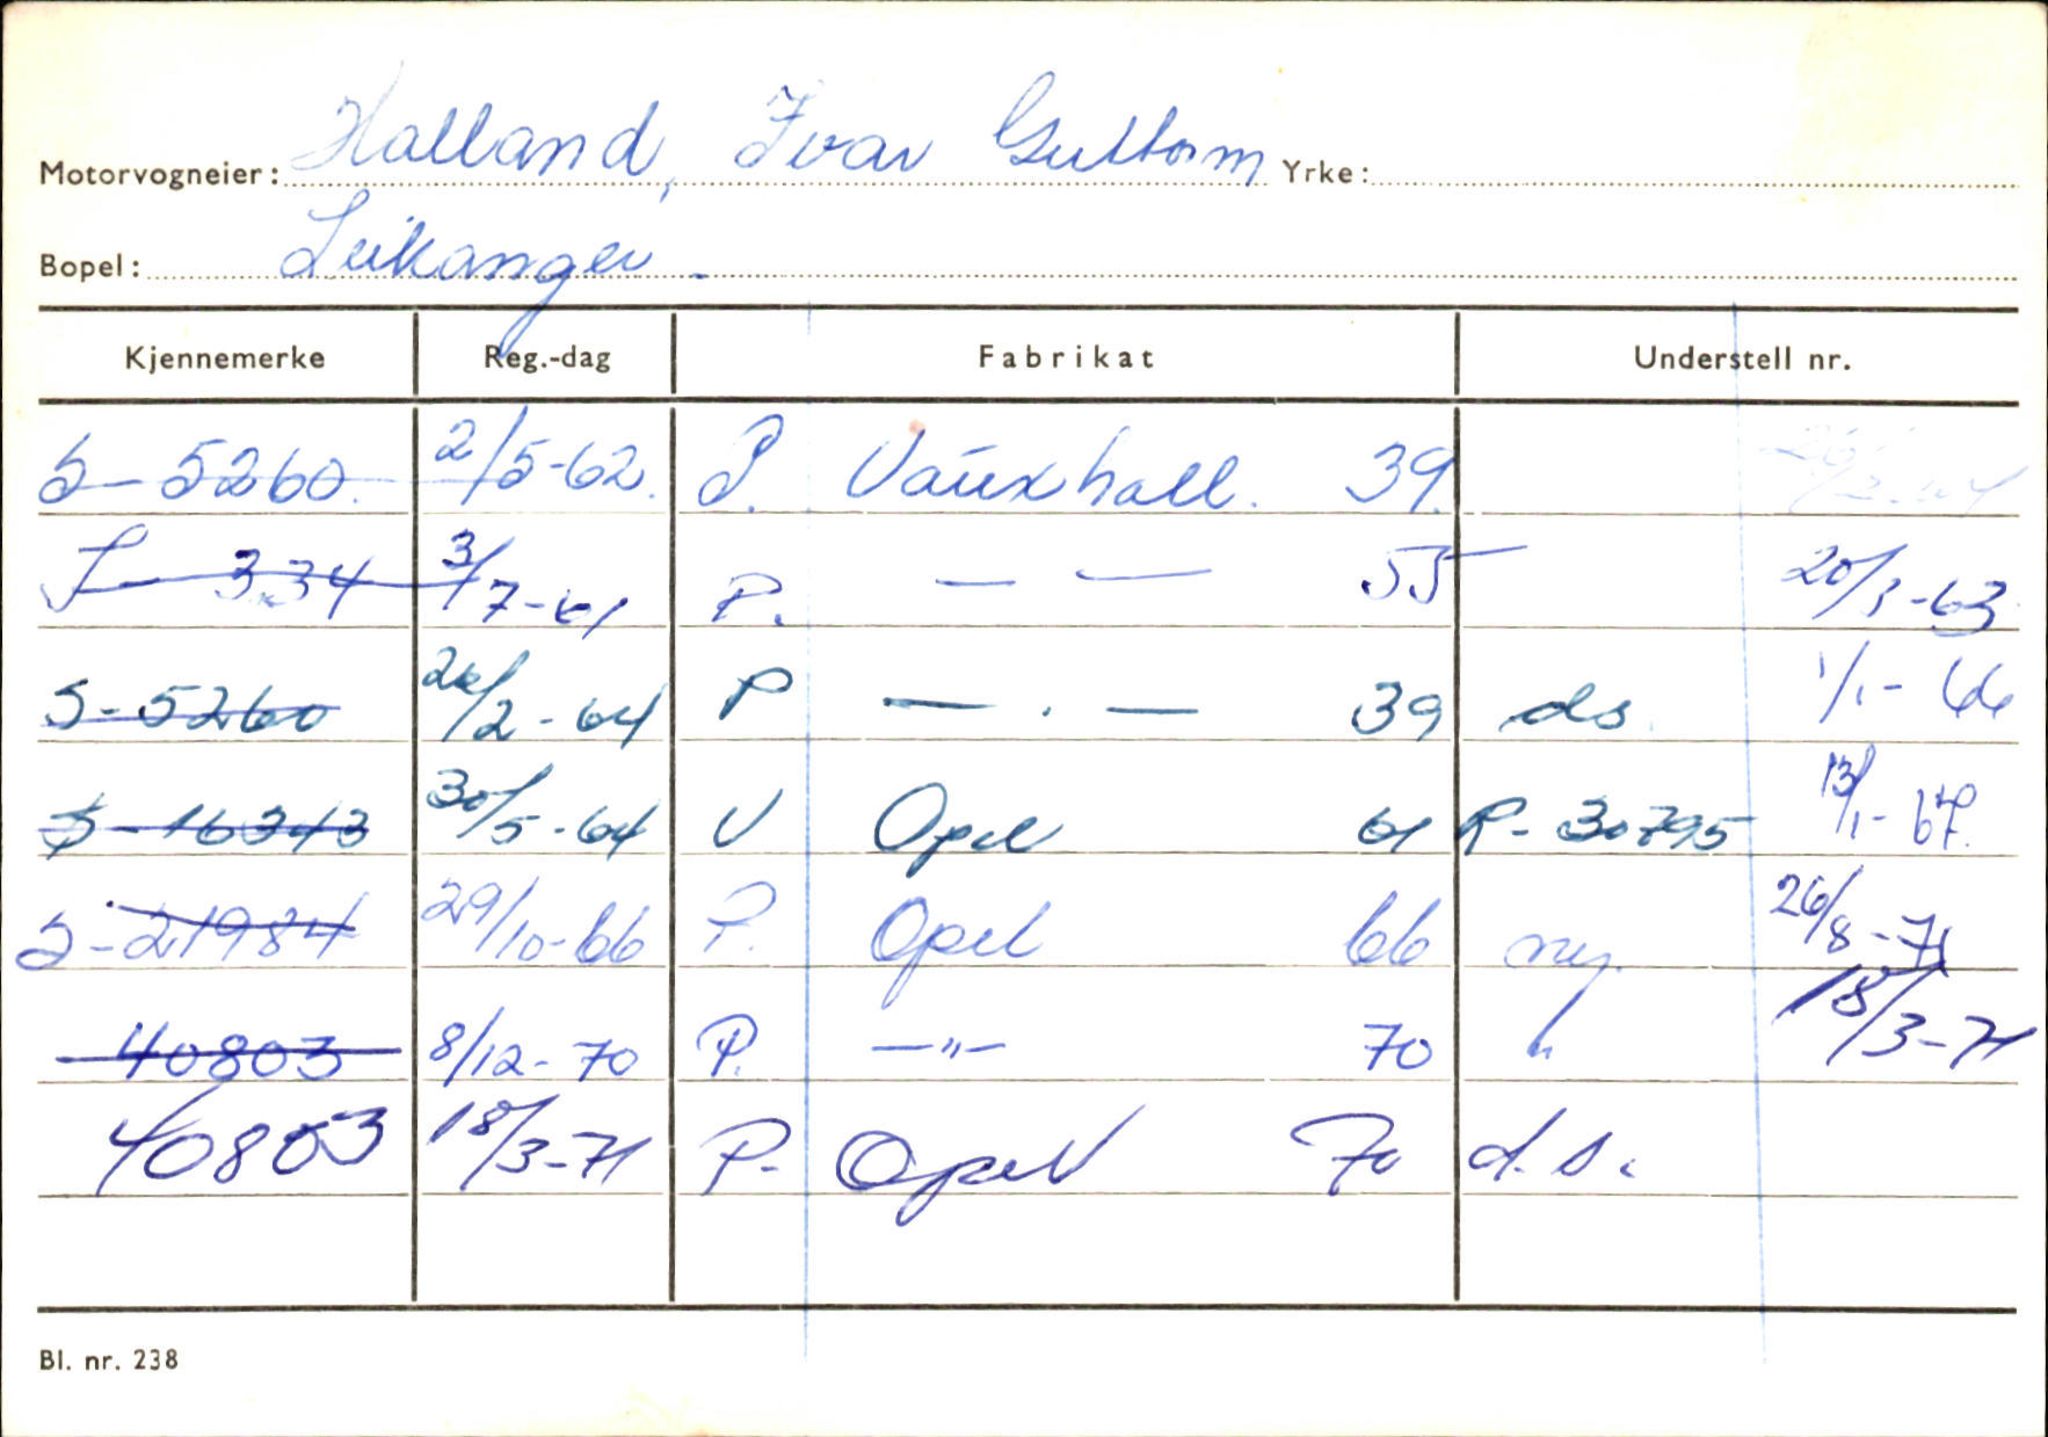 Motorvogneier: Halland, Ivar Guttorm Yrke:
Bopel: Leikanger -
Kjennemerke Reg.-dag Fabrikat Understell nr.
S-5260. 2/5-62. P. Vauxhall. 39.
S-334 3/7-61 P. — — 55 20/3-63
S-5260 26/2-64 P — . — 39 ds. 1/1-66
S-16343 30/5-64 V Opel 61 P-30795 13/1-67.
S-21984 29/10-66 P. Opel 66 ny. 26/8-71
40803 8/12-70 P. —"— 70 " 18/3-71
40803 18/3-71 P- Opel 70 d.s.
Bl. nr. 238